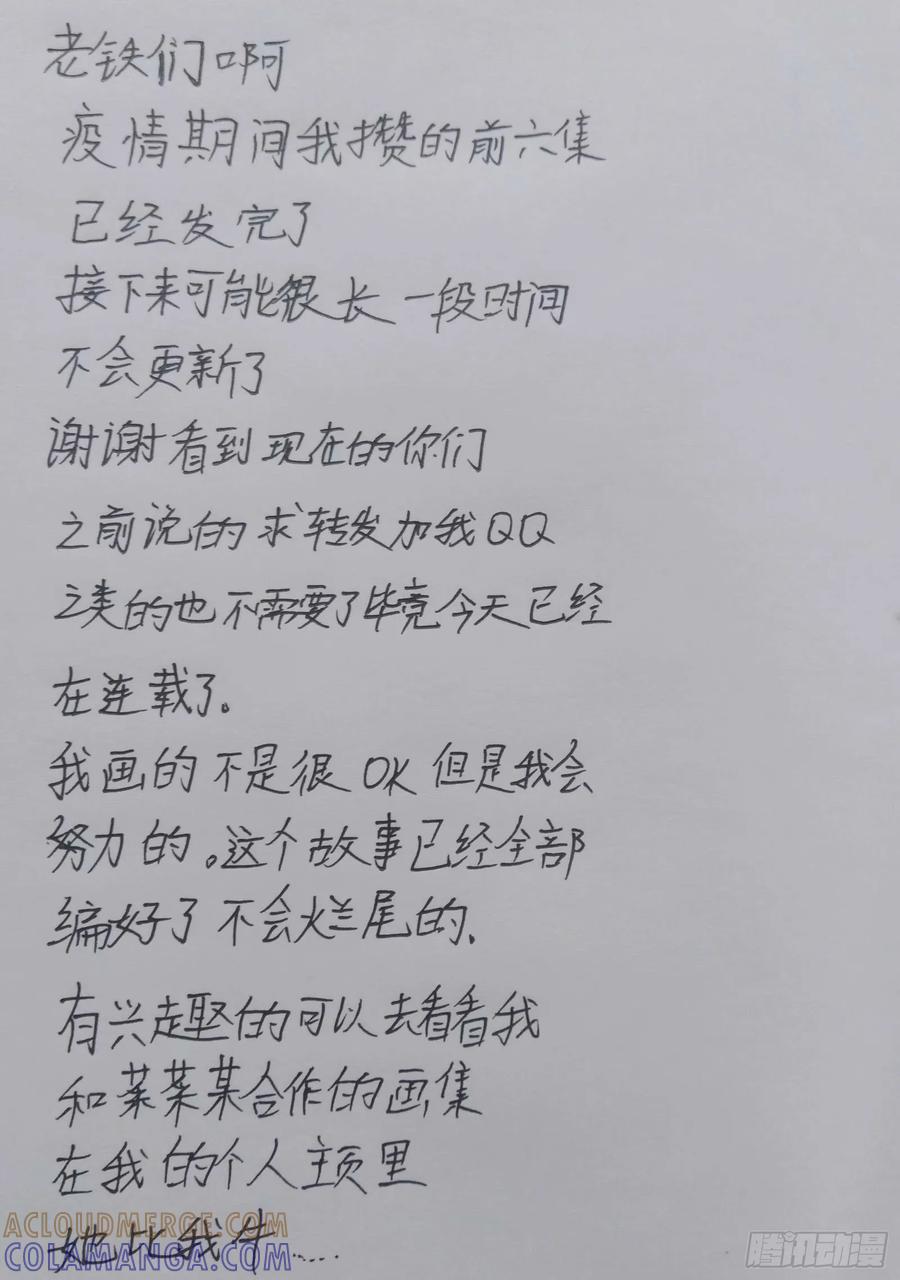 老铁们啊
疫情期间我攒的前六集
已经发完了
接下来可能很长一段时间
不会更新了
谢谢看到现在的你们
之前说的求转发加我QQ
之类的也不需要了毕竟今天已经
在连载了。
我画的不是很OK但是我会
努力的。这个故事已经全部
编好了不会烂尾的.
有兴趣的可以去看看我
和菜菜某合作的画集
在我的个人主页里
她比我牛......
ACLOUDMERGE.COM
COLAMANGA.COM
腾讯动漫